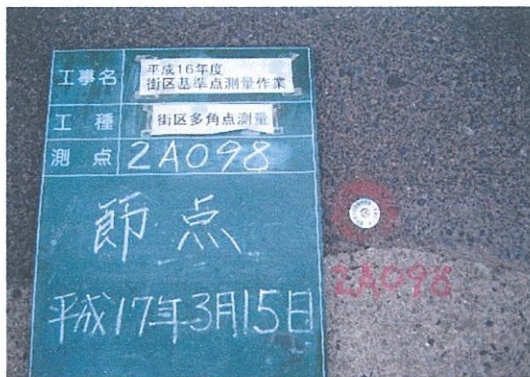 工事名 平成16年度
街区基準点測量作業
工種 街区多角点測量
測点 2A098
節点
平成17年3月15日
2A098